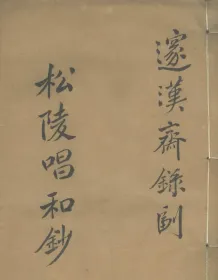 邃漢齋錄副
松陵唱和鈔